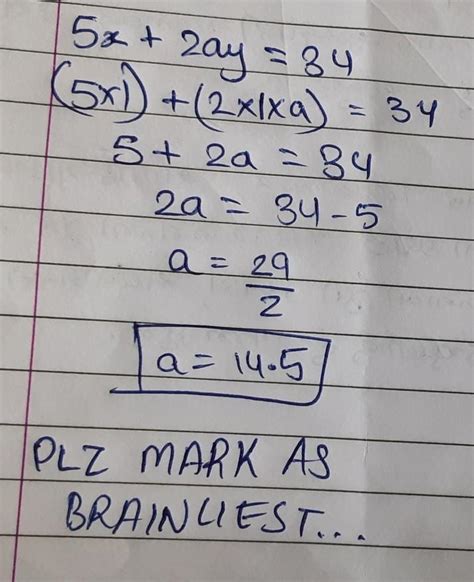 5x + 2ay = 34
(5x1) + (2x1xa) = 34
5 + 2a = 34
2a = 34 - 5
a = 29/2
a = 14.5
PLZ MARK AS
BRAINLIEST...